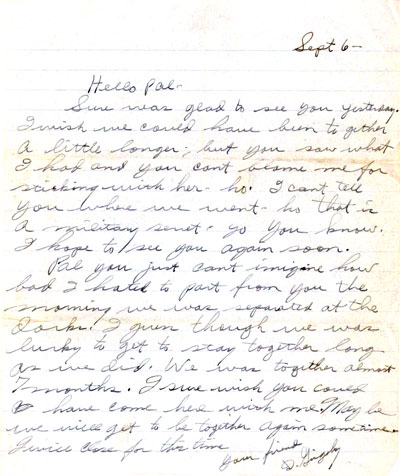 Sept 6-
Hello Pal-
Sure was glad to see you yesterday.
I wish we could have been to gether
a little longer, but you saw what
I had and you cant blame me for
sticking with her - ho. I can't tell
you where we went - ho that is
a military secret - yo you know.
I hope to see you again soon.
Pal you just cant imigine how
bad I hated to part from you the
morning we was separated at the
Docks. I guess though we was
lucky to get to stay together long
as we did. We was together almost
7 months. I sure wish you could
have come here with me. May be
we will get to be together again sometime.
I will close for this time
your friend
D.